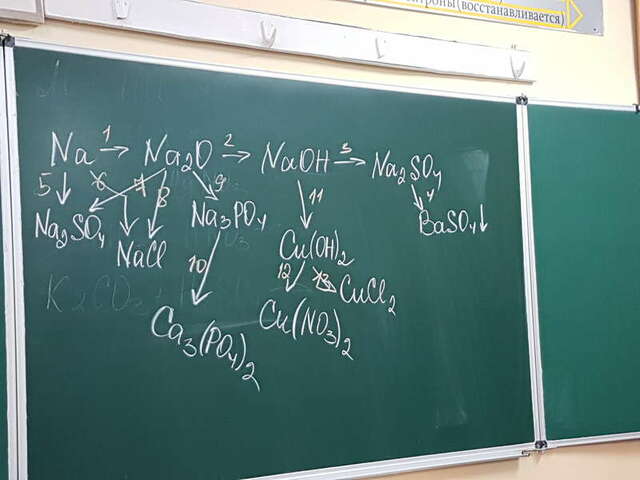 троны(восстанавливается)
Na 1→ Na₂O 2→ NaOH 3→ Na₂SO₄
5 6 7 8 9 11 4
Na₂SO₄ NaCl Na₃PO₄ Cu(OH)₂ BaSO₄↓
10 12 13 CuCl₂
Ca₃(PO₄)₂ Cu(NO₃)₂